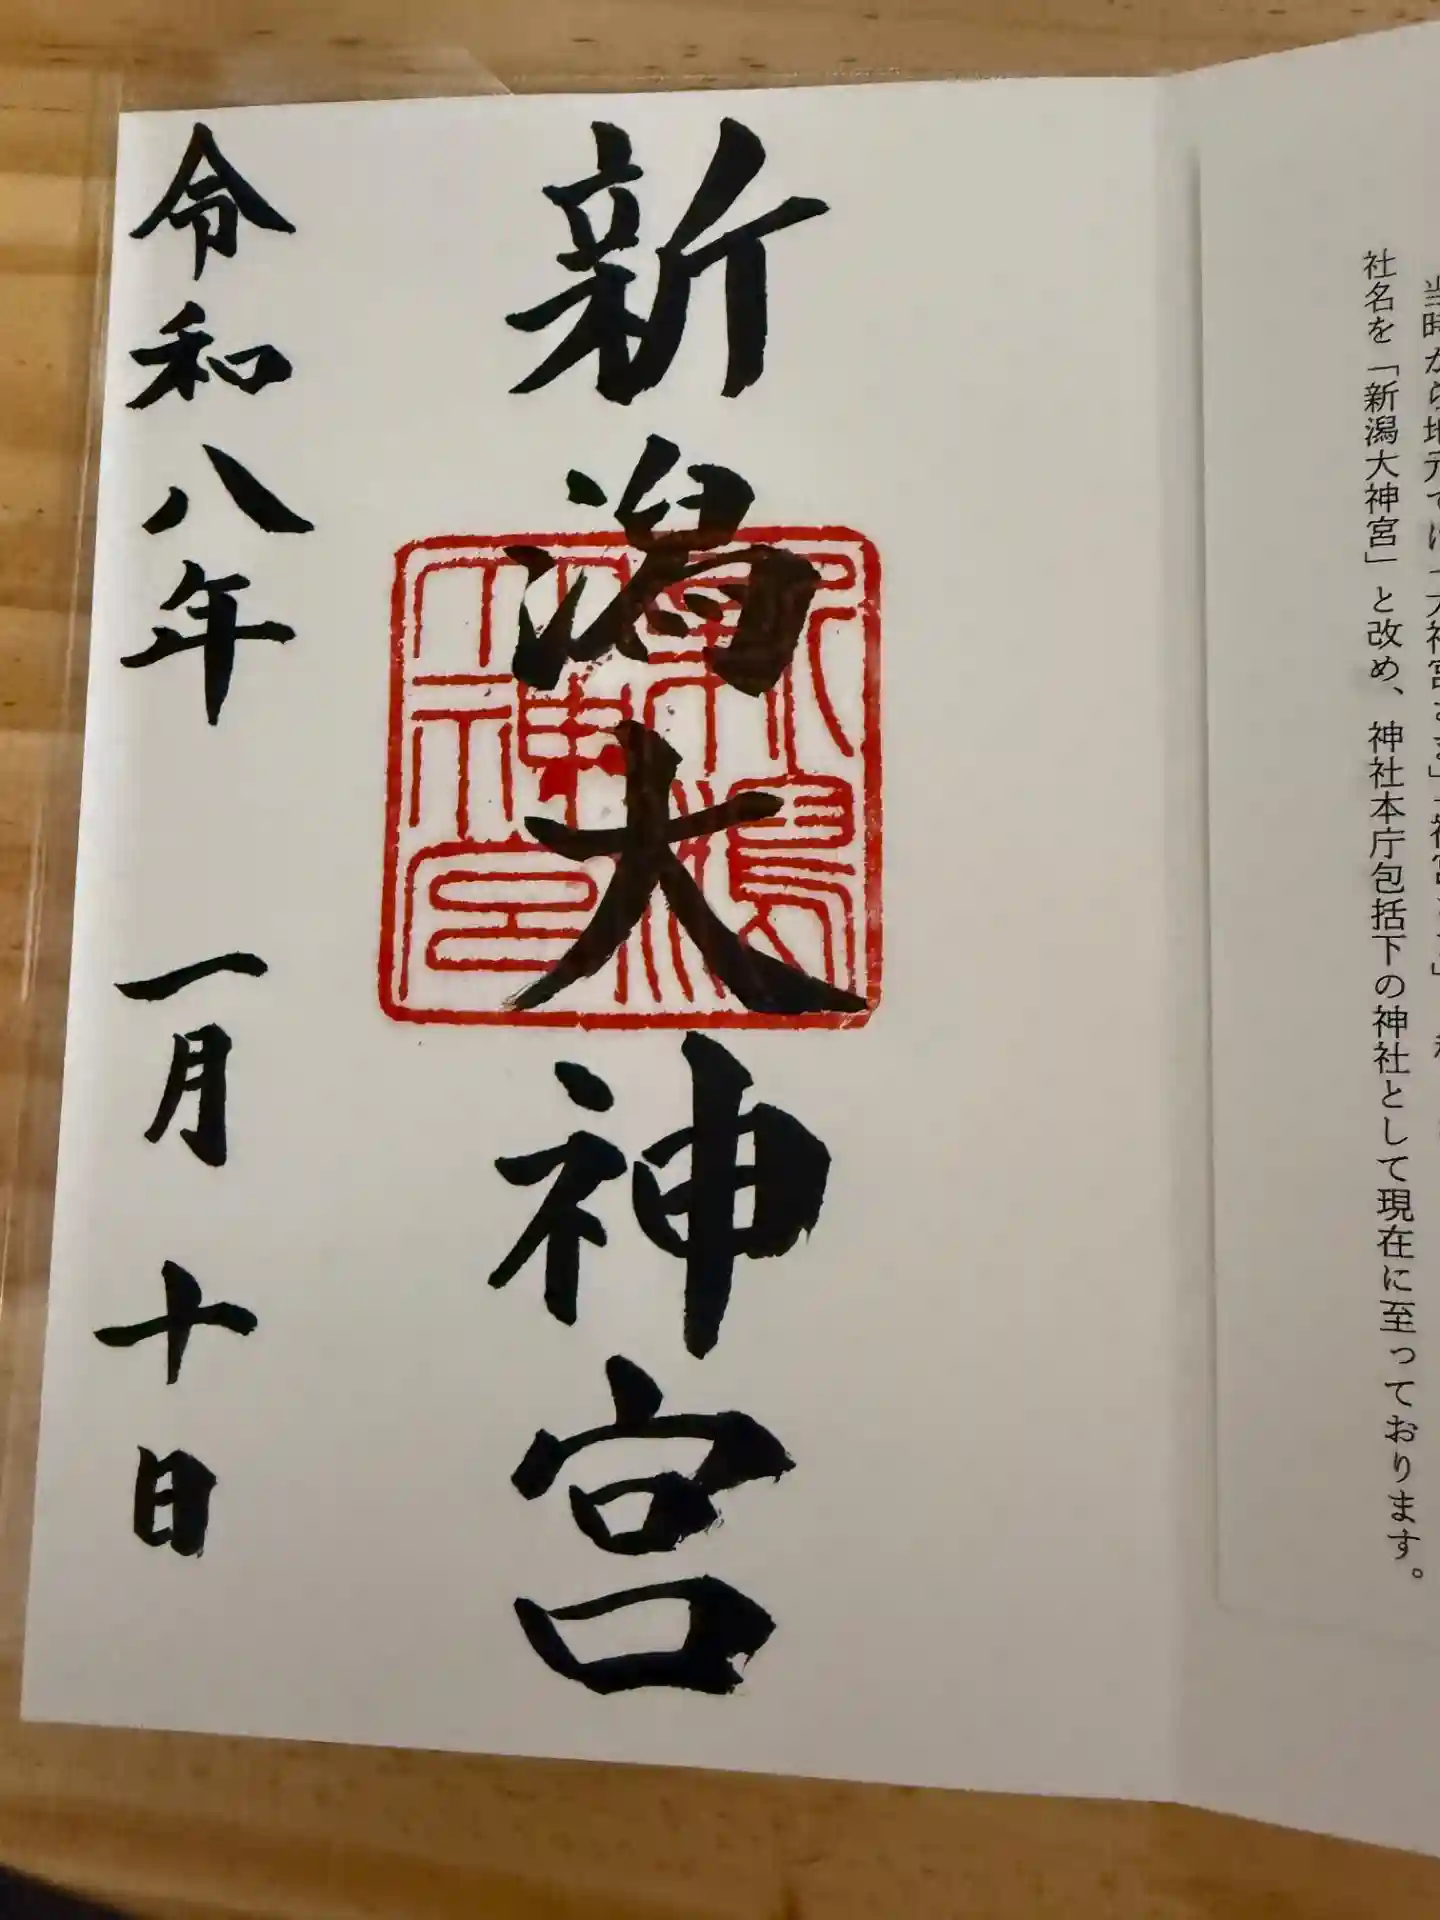 当時から地元では「大神宮さま」
社名を「新潟大神宮」と改め、神社本庁包括下の神社として現在に至っております。
新潟大神宮
新潟
大神宮
令和八年 一月 十日